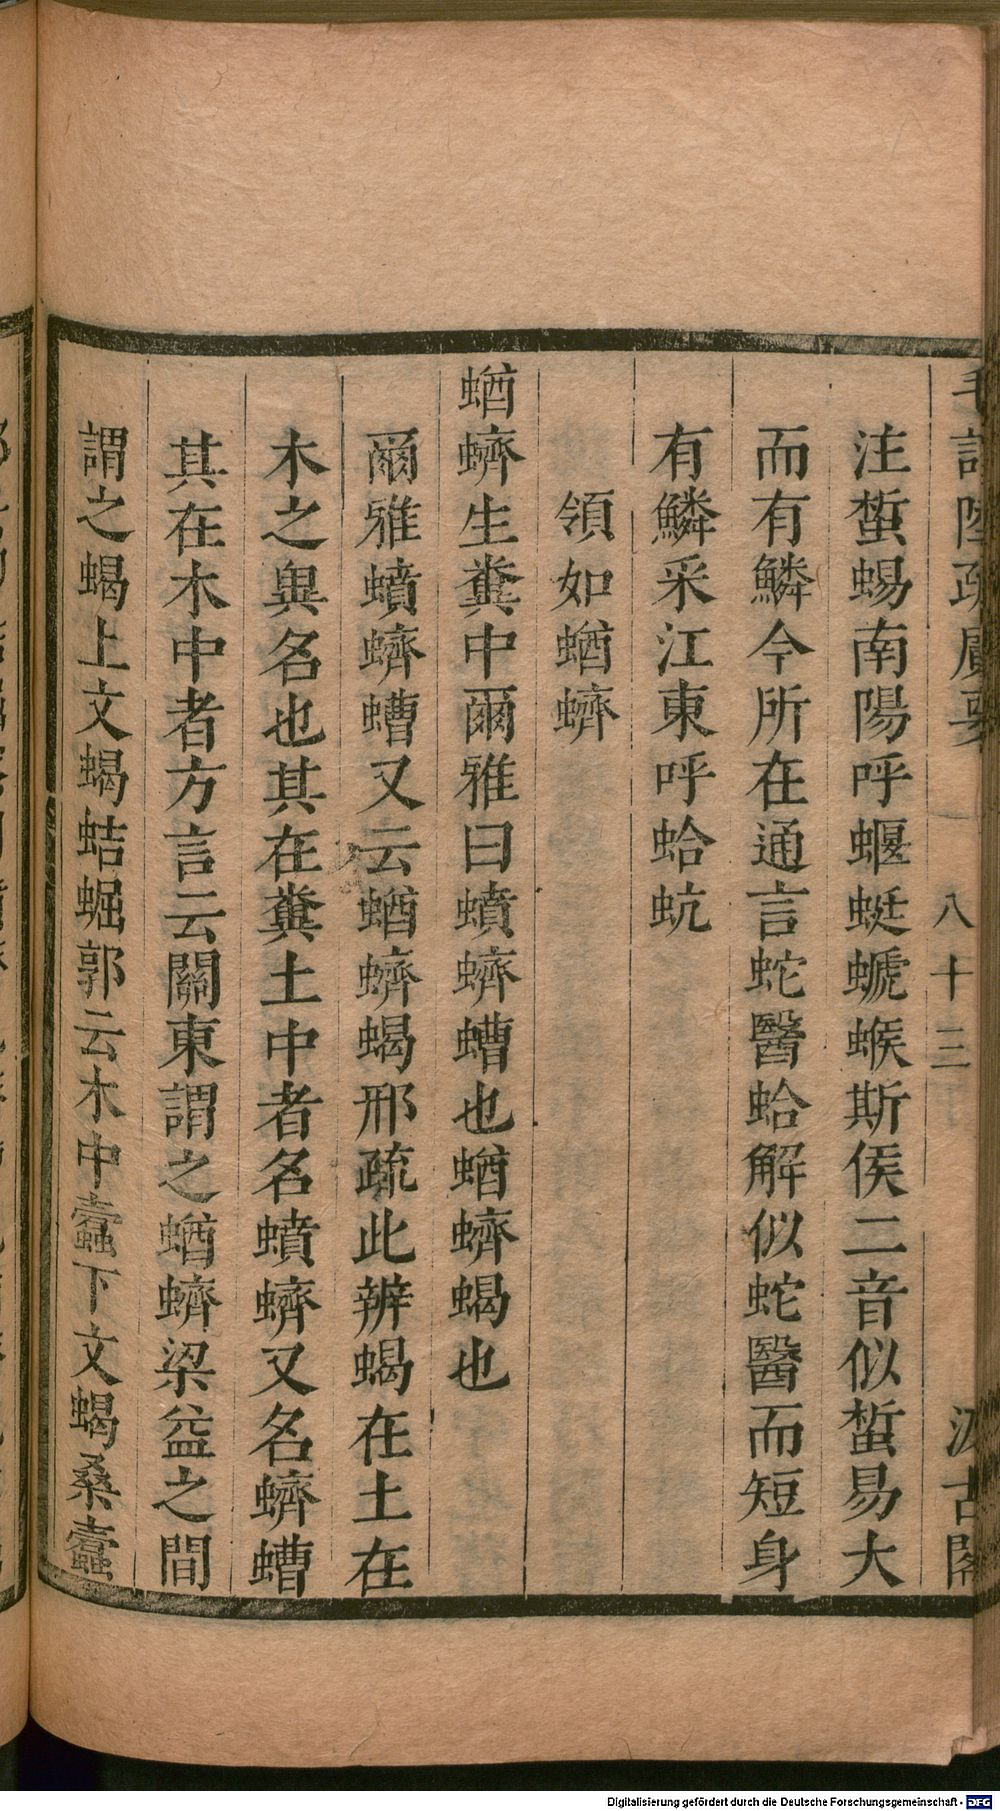 毛詩陸疏廣要 八十三 汲古閣
注蜤蜴南陽呼蝘蜓蜥蝘斯侯二音似蜤易大
而有鱗今所在通言蛇醫蛤解似蛇醫而短身
有鱗采江東呼蛤蚖
領如蝤蠐
蝤蠐生糞中爾雅曰蟦蠐螬也蝤蠐蝎也
爾雅蟦蠐螬又云蝤蠐蝎邢疏此辨蝎在土在
木之異名也其在糞土中者名蟦蠐又名蠐螬
其在木中者方言云關東謂之蝤蠐梁益之間
謂之蝎上文蝎蛣蜛郭云木中蠹下文蝎桑蠹
Digitalisierung gefördert durch die Deutsche Forschungsgemeinschaft - DFG